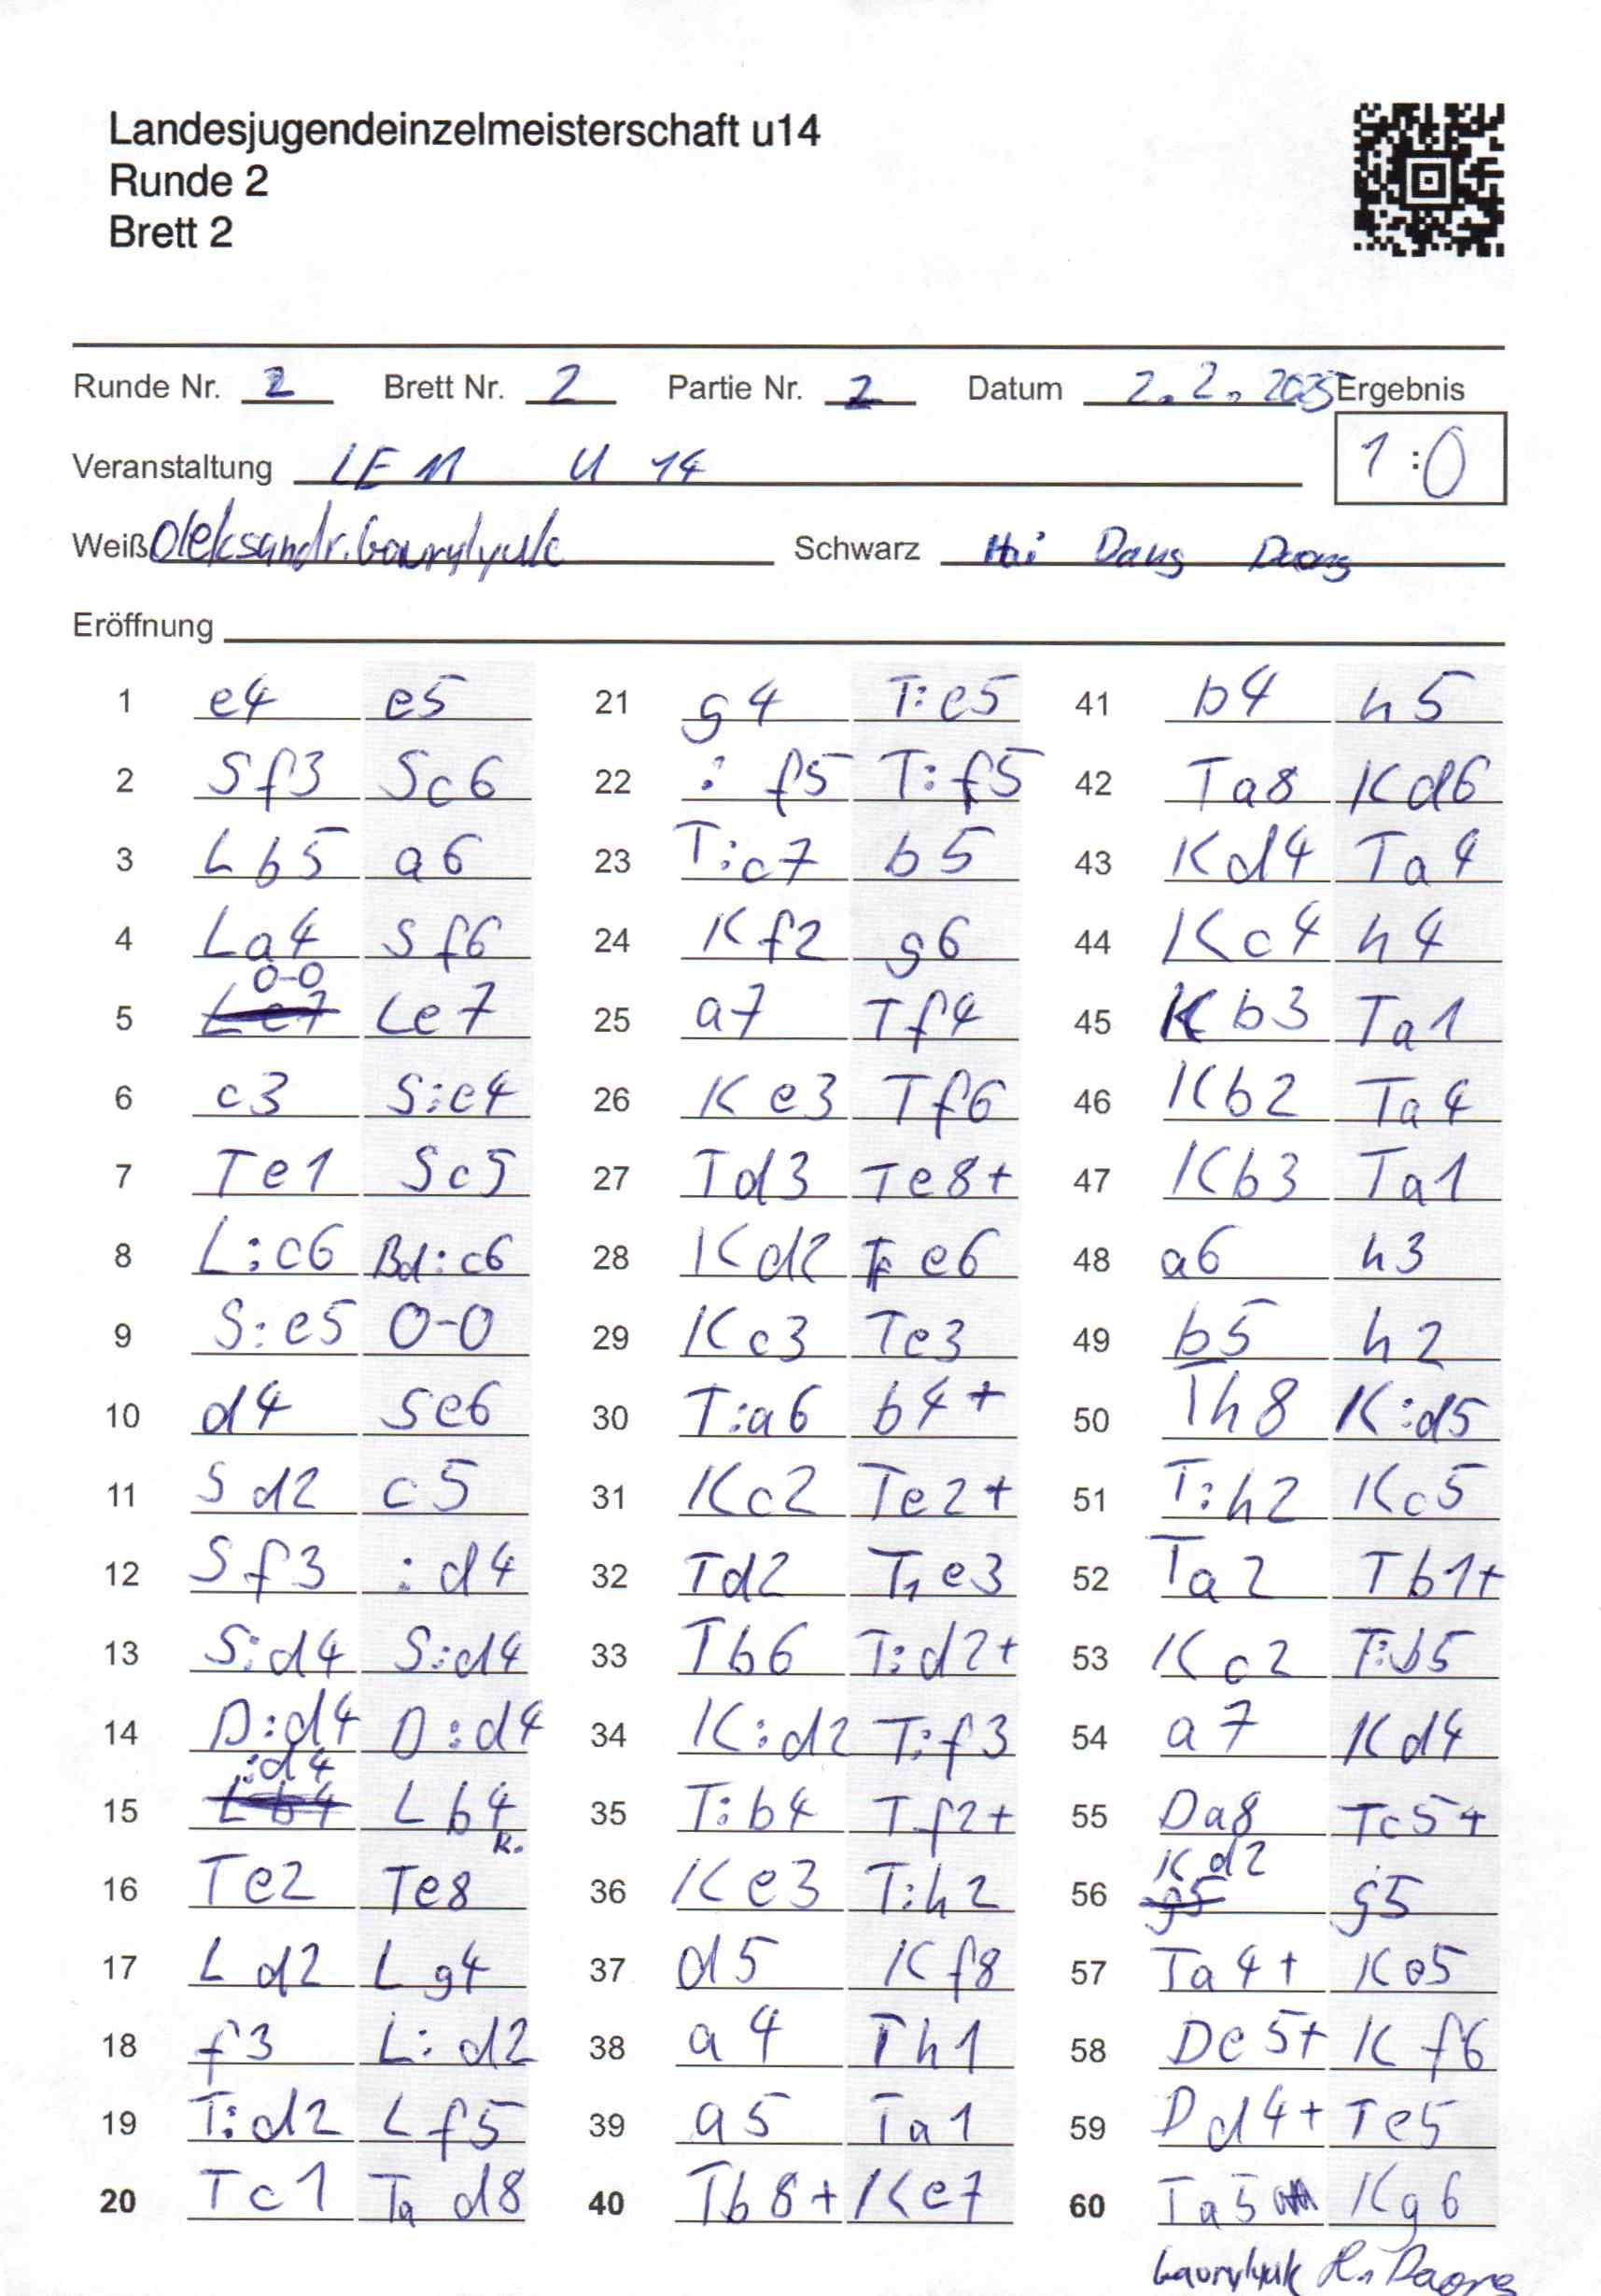 Landesjugendeinzelmeisterschaft u14
Runde 2
Brett 2
Runde Nr. 2 Brett Nr. 2 Partie Nr. 2 Datum 2.2.2025 Ergebnis
Veranstaltung LEM U 14 1:0
Weiß Oleksandr. Gavrylyuk Schwarz Hai Dang Duong
Eröffnung
1 e4 e5 21 g4 T:e5 41 b4 h5
2 Sf3 Sc6 22 :f5 T:f5 42 Ta8 Kd6
3 Lb5 a6 23 T:c7 b5 43 Kd4 Ta4
4 La4 Sf6 24 Kf2 g6 44 Kc4 h4
0-0
5 Le7 Le7 25 a7 Tf4 45 Kb3 Ta1
6 c3 S:e4 26 Ke3 Tf6 46 Kb2 Ta4
7 Te1 Sc5 27 Td3 Te8+ 47 Kb3 Ta1
8 L:c6 Bd:c6 28 Kd2 Te6 48 a6 h3
9 S:e5 0-0 29 Kc3 Te3 49 b5 h2
10 d4 Se6 30 T:a6 b4+ 50 Th8 K:d5
11 Sd2 c5 31 Kc2 Te2+ 51 T:h2 Kc5
12 Sf3 :d4 32 Td2 T1e3 52 Ta2 Tb1+
13 S:d4 S:d4 33 Tb6 T:d2+ 53 Kc2 T:b5
14 D:d4 D:d4 34 K:d2 T:f3 54 a7 Kd4
:d4
15 Lb4 Lb4 35 T:b4 Tf2+ 55 Da8 Tc5+
R. Kd2
16 Te2 Te8 36 Ke3 T:h2 56 g5 g5
17 Ld2 Lg4 37 d5 Kf8 57 Ta4+ Ke5
18 f3 L:d2 38 a4 Th1 58 De5+ Kf6
19 T:d2 Lf5 39 a5 Ta1 59 Dd4+ Te5
20 Tc1 Ta d8 40 Tb8+ Ke7 60 Ta5 Kg6
Gavrylyuk H. Duong